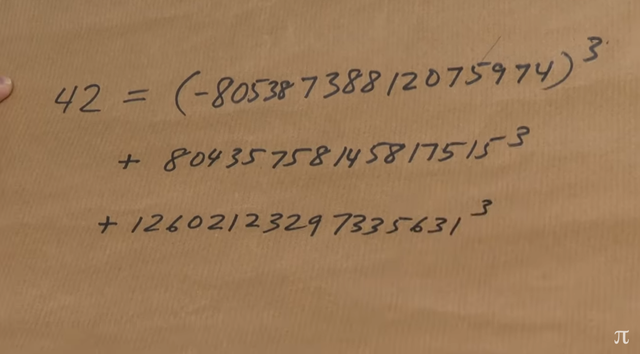 42 = (-80538738812075974)³
+ 80435758145817515³
+ 12602123297335631³
π